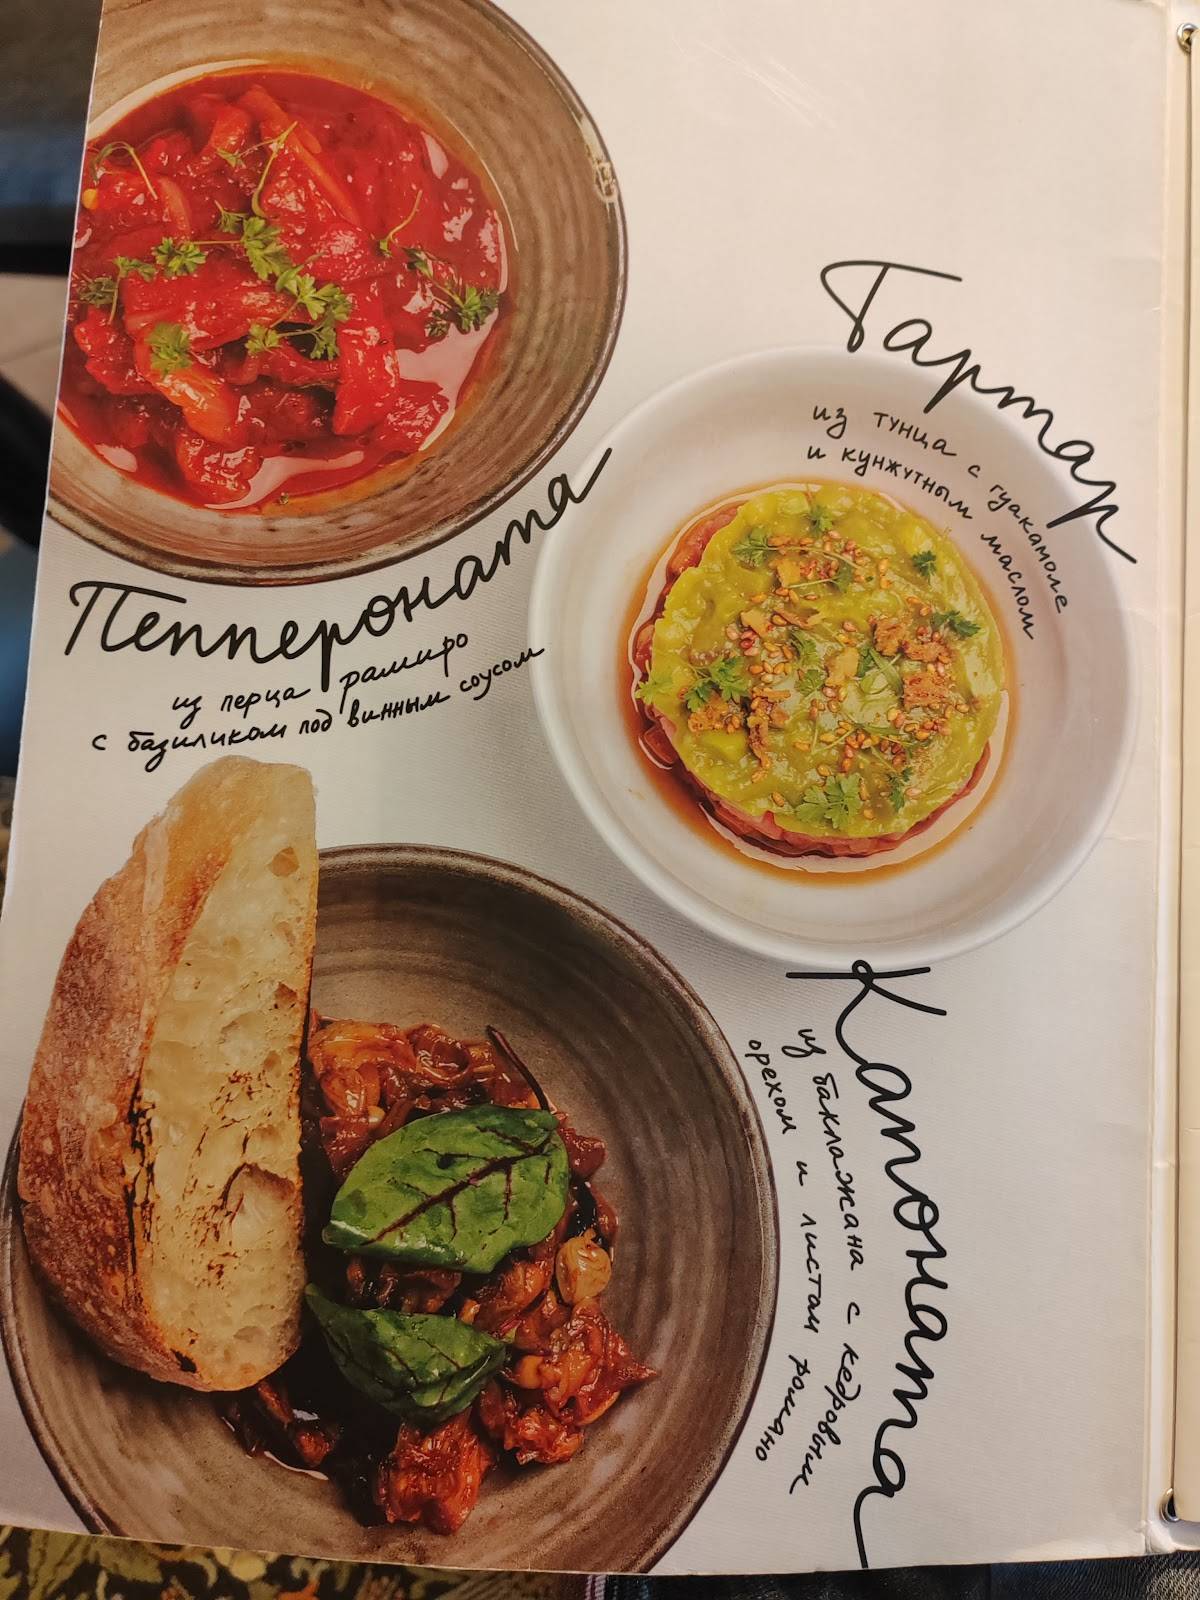 Пеппероната
из перца рамиро
с базиликом под винным соусом
Тартар
из тунца с гуакамоле
и кунжутным маслом
Капоната
из баклажана с кедровым
орехом и листом романо